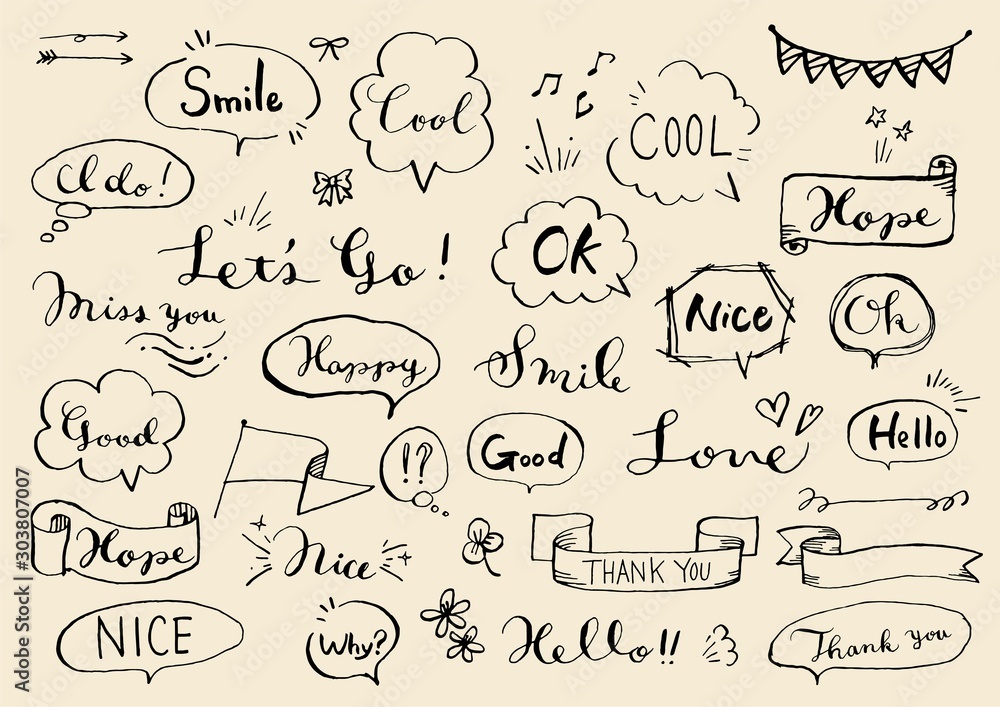 Smile
Cool
COOL
I do!
Hope
Let's Go!
Ok
Miss you
Nice
Ok
Happy
Smile
Good
!?
Good
Love
Hello
Hope
Nice
THANK YOU
NICE
Why?
Hello!!
Thank you
Adobe Stock | #303807007